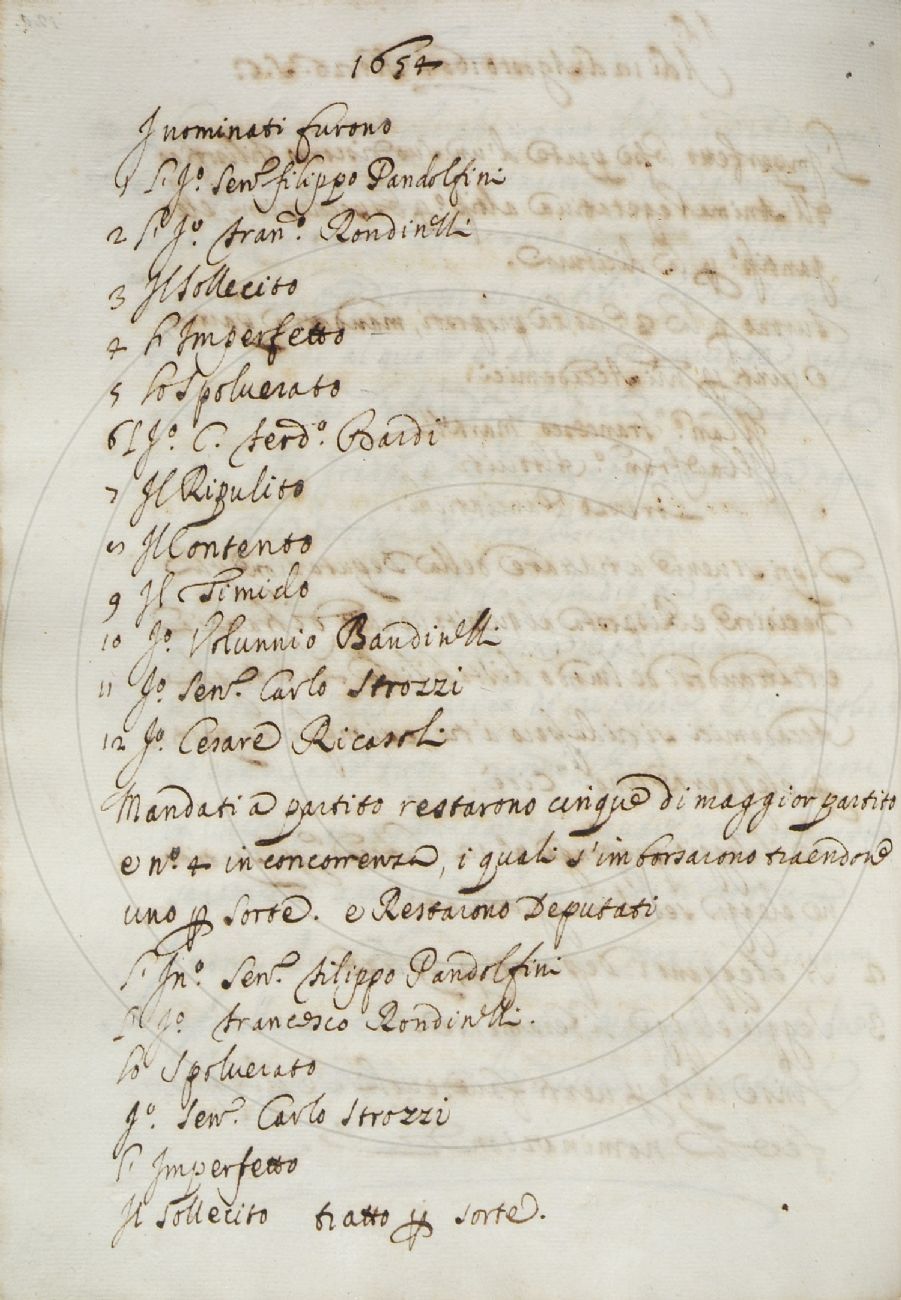 1654
I nominati furono
1 L'I.º Sen.e filippo Pandolfini
2 L'I.º fran.º Rondinelli
3 Il Sollecito
4 L'Imperfetto
5 Lo Spoluerato
6 L'I.º C. ferd.º Bardi
7 Il Ripulito
8 Il Contento
9 Il Timido
10 I.º Volunnio Bandinelli
11 I.º Sen.e Carlo Strozzi
12 I.º Cesare Ricasoli
Mandati a partito restarono cinque di maggior partito
e nº. 4 in concorrenza, i quali s'imborsarono traendone
uno p sorte. e Restarono Deputati
L' In.º Sen.e filippo Pandolfini
L' I.º francesco Rondinelli.
Lo Spoluerato
I.º Sen.e Carlo Strozzi
L' Imperfetto
Il Sollecito tratto p sorte.